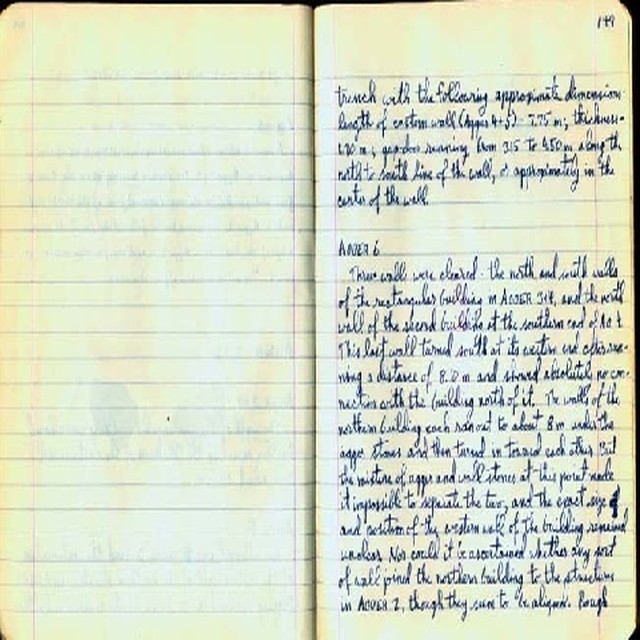 149
trench with the following approximate dimension:
length of eastern wall (Agger 4+5) - 7.75 m; thickness-
1.20 m; gap-door running from 3.15 to 4.50 m along the
north to south line of the wall, or approximately in the
center of the wall.
AGGER 6
Three walls were cleared: the north and south walls
of the rectangular building in AGGER 3+4, and the north
wall of the second building at the southern end of AG.
This last wall turned south at its western end after run-
ning a distance of 8.20 m and showed absolutely no con-
nection with the building north of it. The walls of the
northern building each ran out to about 8 m under the
agger stones and then turned in toward each other. But
the mixture of agger and wall stones at this point made
it impossible to separate the two, and the exact size
and position of the western wall of the building remained
unclear. Nor could it be ascertained whether any sort
of wall joined the northern building to the structure
in AGGER 2, though they seem to be aligned. Rough